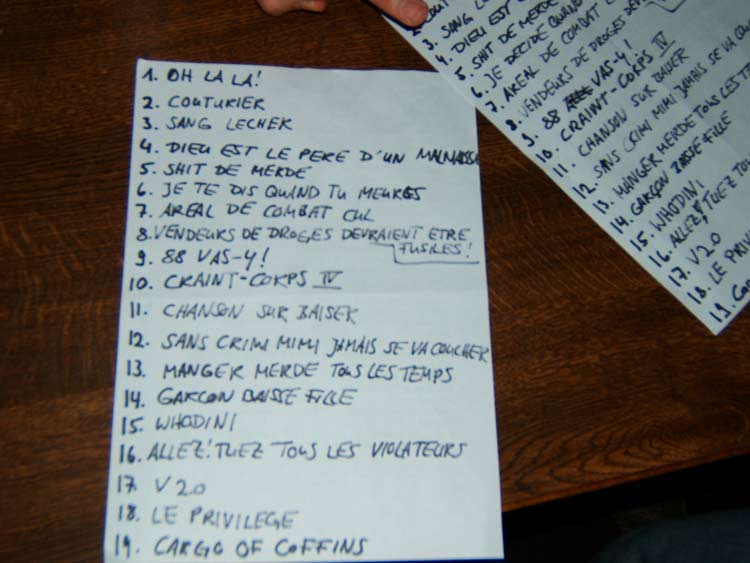 1. OH LA LA!
2. COUTURIER
3. SANG LECHER
4. DIEU EST LE PERE D'UN MALNAISSA
5. SHIT DE MERDE
6. JE TE DIS QUAND TU MEURES
7. AREAL DE COMBAT CUL
8. VENDEURS DE DROGES DEVRAIENT ETRE
FUSILES!
9. 88 VAS-Y!
10. CRAINT-CORPS IV
11. CHANSON SUR BAISER
12. SANS CRIMI MIMI JAMAIS SE VA COUCHER
13. MANGER MERDE TOUS LES TEMPS
14. GARCON BAISSE FILLE
15. WHODINI
16. ALLEZ! TUEZ TOUS LES VIOLATEURS
17. V 2.0
18. LE PRIVILEGE
19. CARGO OF COFFINS
3. SANG L
4. DIEU EST
5. SHIT DE MERDE
6. JE DECIDE QUAND
7. AREAL DE COMBAT
8. VENDEURS DE DROGES DEV
9. 88 VAS-Y!
10. CRAINT-CORPS IV
11. CHANSON SUR BAISER
12. SANS CRIMI MIMI JAMAIS SE VA COU
13. MANGER MERDE TOUS LES TE
14. GARCON BAISSE FILLE
15. WHODINI
16. ALLEZ! TUEZ TOU
17. V 2.0
18. LE PRIVI
19. CAR